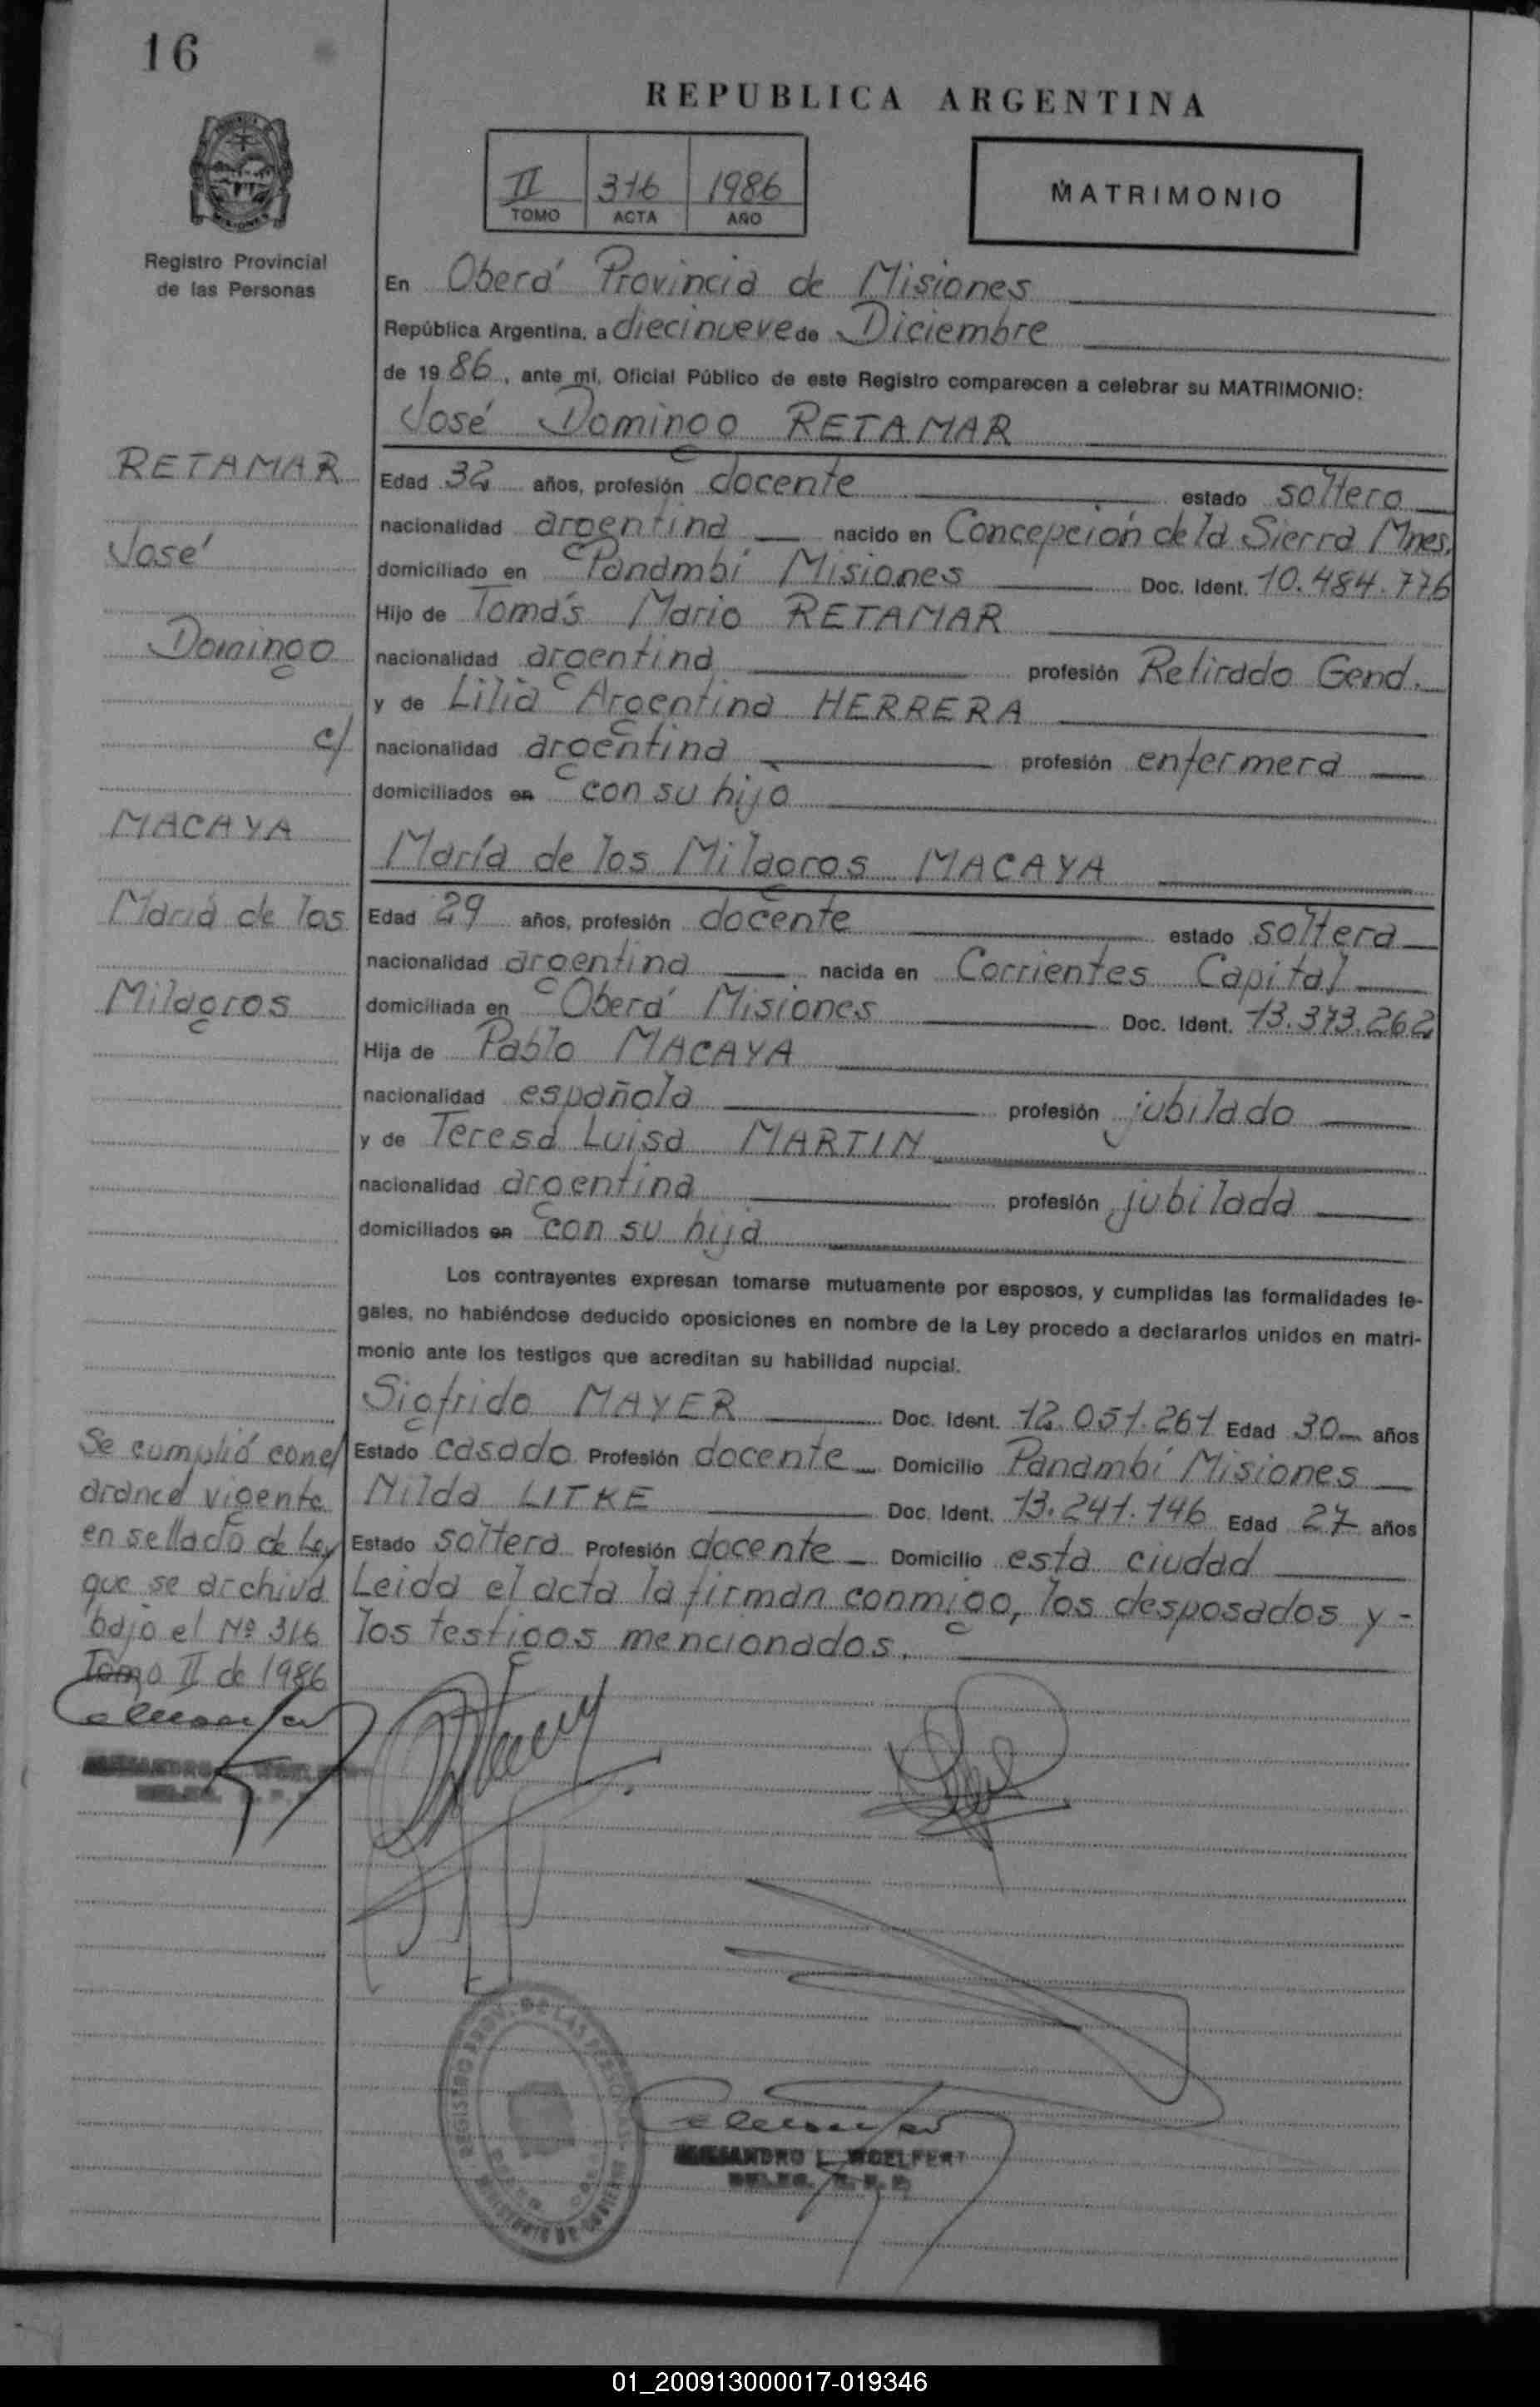 16
REPUBLICA ARGENTINA
II 316 1986
TOMO ACTA AÑO
MATRIMONIO
Registro Provincial
de las Personas
En Oberá Provincia de Misiones
República Argentina, a diecinueve de Diciembre
de 1986, ante mí, Oficial Público de este Registro comparecen a celebrar su MATRIMONIO:
José Domingo RETAMAR
RETAMAR
José
Domingo
c/
MACAYA
María de los
Milagros
Edad 32 años, profesión docente estado soltero
nacionalidad argentina nacido en Concepción de la Sierra Mnes.
domiciliado en Panambí Misiones Doc. Ident. 10.484.776
Hijo de Tomás Mario RETAMAR
nacionalidad argentina profesión Retirado Gend.
y de Lilia Argentina HERRERA
nacionalidad argentina profesión enfermera
domiciliados en con su hijo
María de los Milagros MACAYA
Edad 29 años, profesión docente estado soltera
nacionalidad argentina nacida en Corrientes Capital
domiciliada en Oberá Misiones Doc. Ident. 13.373.262
Hija de Pablo MACAYA
nacionalidad española profesión jubilado
y de Teresa Luisa MARTIN
nacionalidad argentina profesión jubilada
domiciliados en con su hija
Los contrayentes expresan tomarse mutuamente por esposos, y cumplidas las formalidades le-
gales, no habiéndose deducido oposiciones en nombre de la Ley procedo a declararlos unidos en matri-
monio ante los testigos que acreditan su habilidad nupcial.
Sigfrido MAYER Doc. Ident. 12.051.261 Edad 30 años
Estado casado Profesión docente Domicilio Panambí Misiones
Nilda LITKE Doc. Ident. 13.241.146 Edad 27 años
Estado soltera Profesión docente Domicilio esta ciudad
Leida el acta la firman conmigo, los desposados y -
los testigos mencionados.
Se cumplió con el
arancel vigente
en sellado de Ley
que se archiva
bajo el Nº 316
Tomo II de 1986
REGISTRO PROV. DE LAS PERSONAS
ALEJANDRO L. WOELFERT
DELEG. R. P. P.
01_200913000017-019346